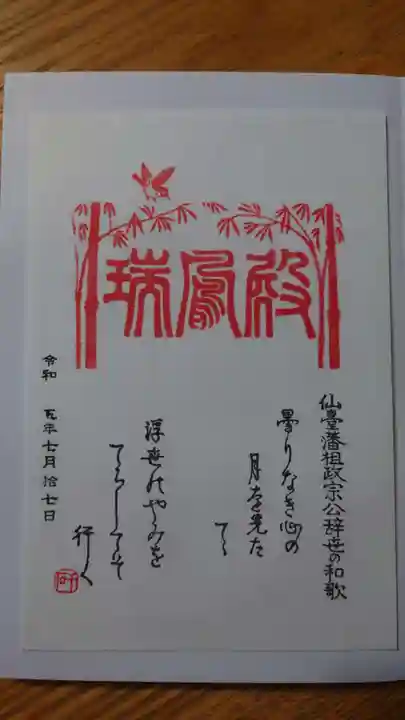 瑞鳳殿
仙臺藩祖政宗公辞世の和歌
曇りなき心の
月を先だ
てゝ
浮世のやみを
てらしてぞ
行く
令和 元年七月拾七日